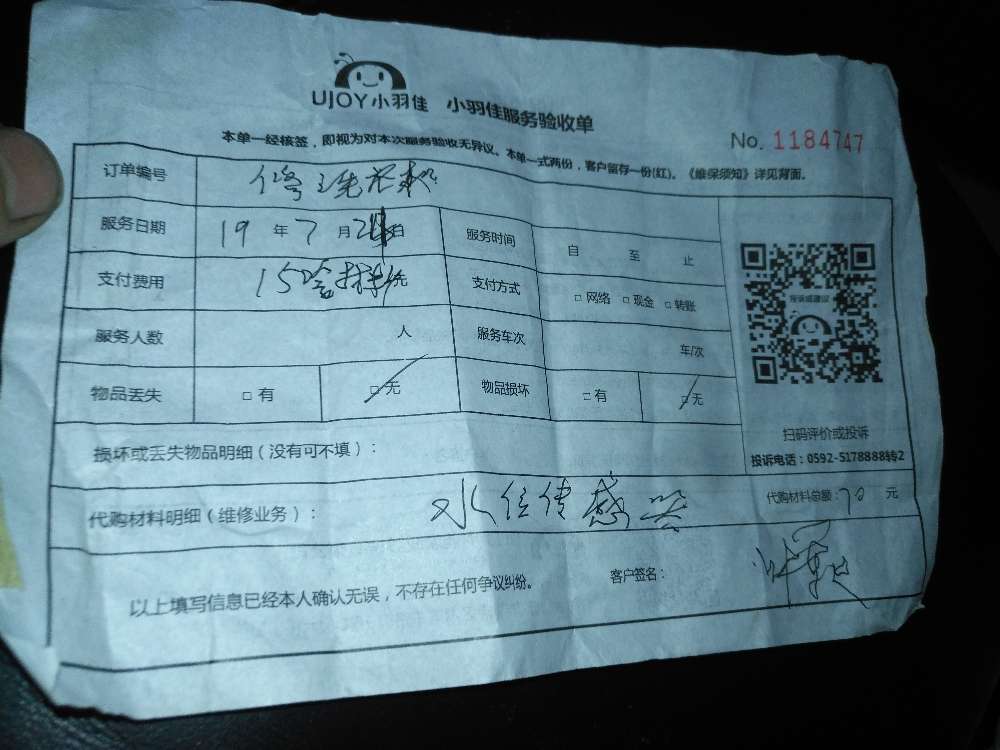 UJOY小羽佳 小羽佳服务验收单
本单一经核签，即视为对本次服务验收无异议。本单一式两份，客户留存一份(红)。《维保须知》详见背面。
No. 1184747
订单编号 修洗衣机
服务日期 19 年 7 月 日 服务时间 自 至 止
支付费用 元 支付方式 □ 网络 □ 现金 □ 转账
服务人数 人 服务车次 车/次
物品丢失 □ 有 □ 无 物品损坏 □ 有 □ 无
投诉或建议
扫码评价或投诉
投诉电话：0592-5178888转2
损坏或丢失物品明细（没有可不填）：
代购材料明细（维修业务）： 水位传感器 代购材料总额：70 元
以上填写信息已经本人确认无误，不存在任何争议纠纷。 客户签名：